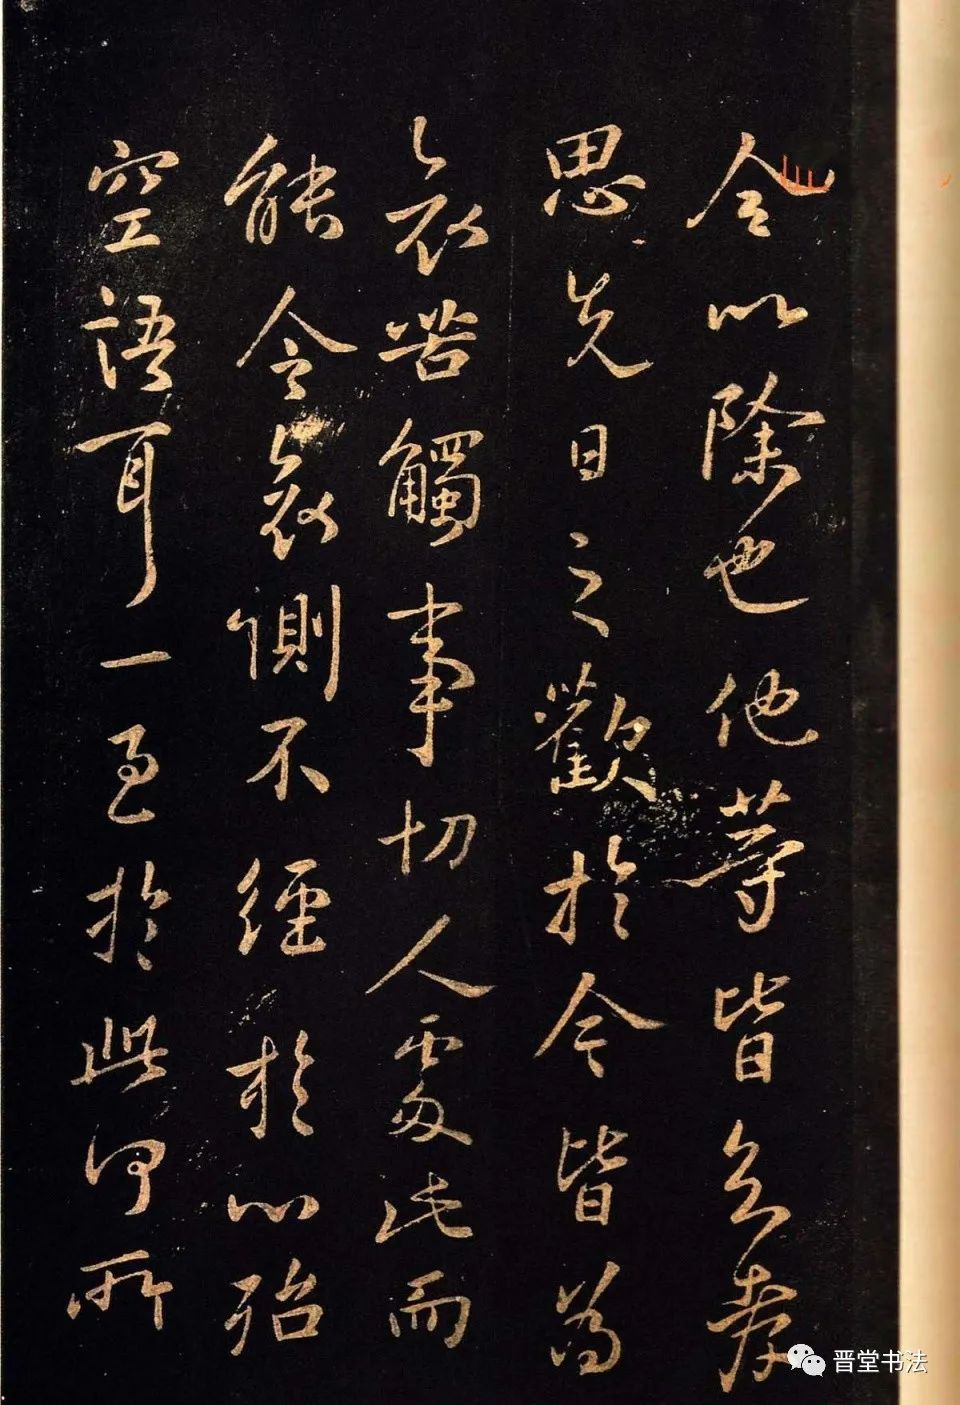 令以除也他等皆至孝
思先日之歡於今皆為
哀苦觸事切人處此而
能令哀惻不經於心殆
空語耳一至於此何所
晋堂书法